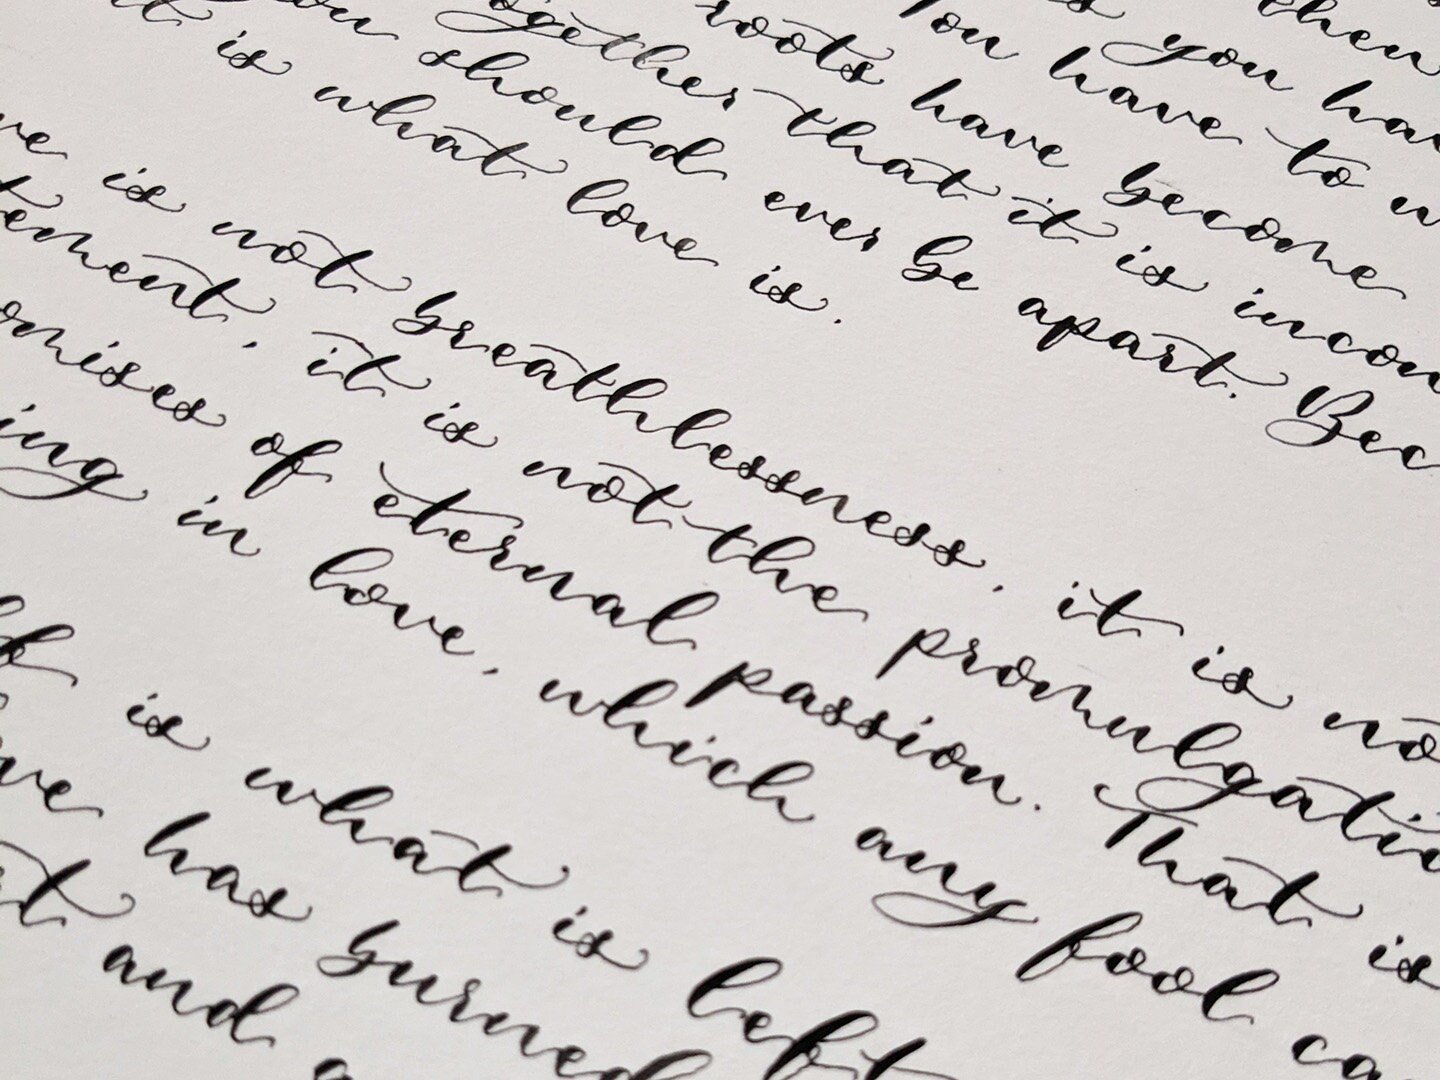 then
s you hav
You have to w
roots have become
ogether that it is incon
ou should ever be apart. Bec
t is what love is.
ve is not breathlessness, it is no
tement, it is not the promulgatio
omises of eternal passion. That is
ing in love, which any fool ca
lf is what is left
ve has burned
t and a